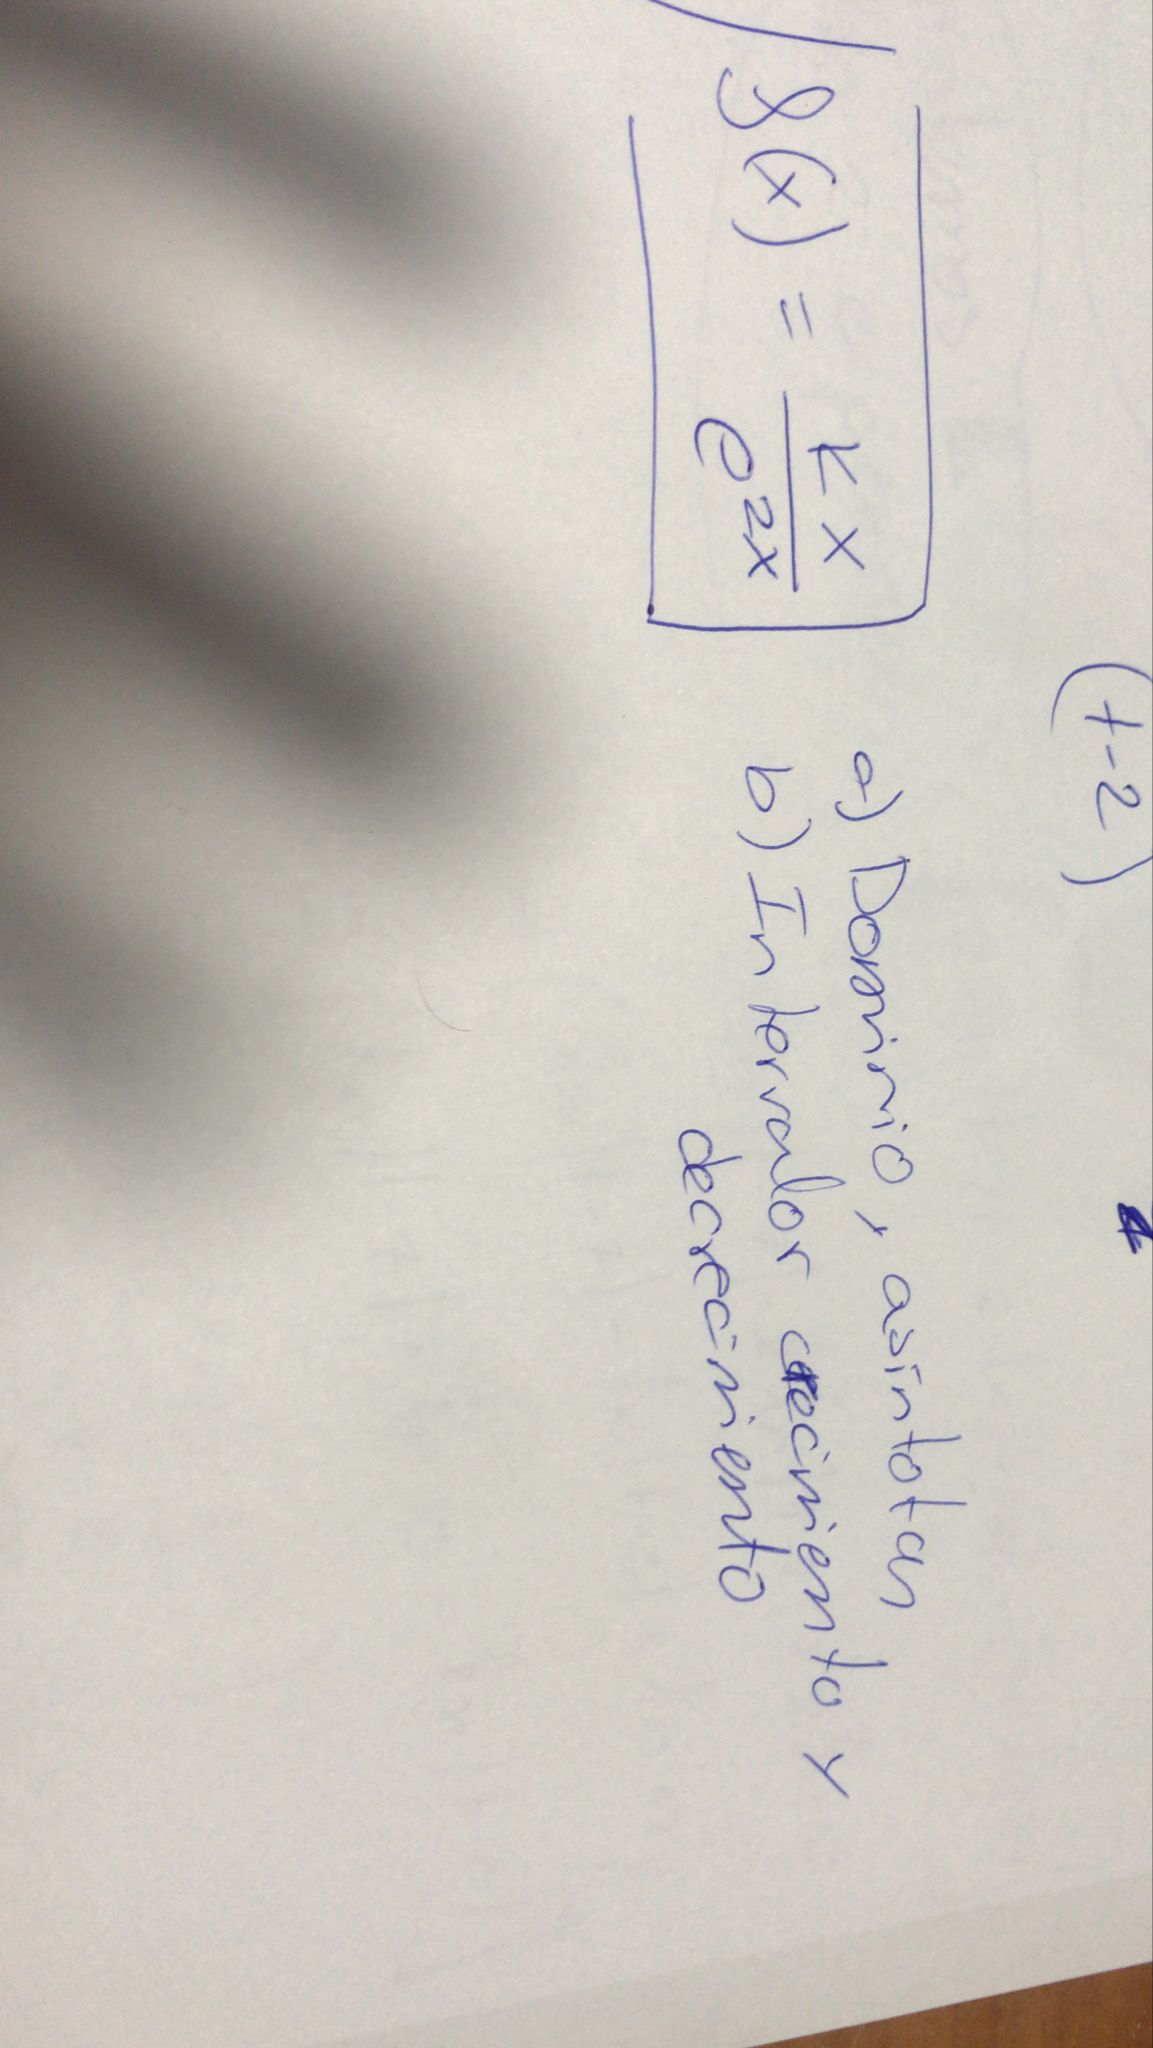 (t-2)
f(x) = kx / e^{2x}
a) Dominio, asíntotas,
b) Intervalos crecimiento y
decrecimiento